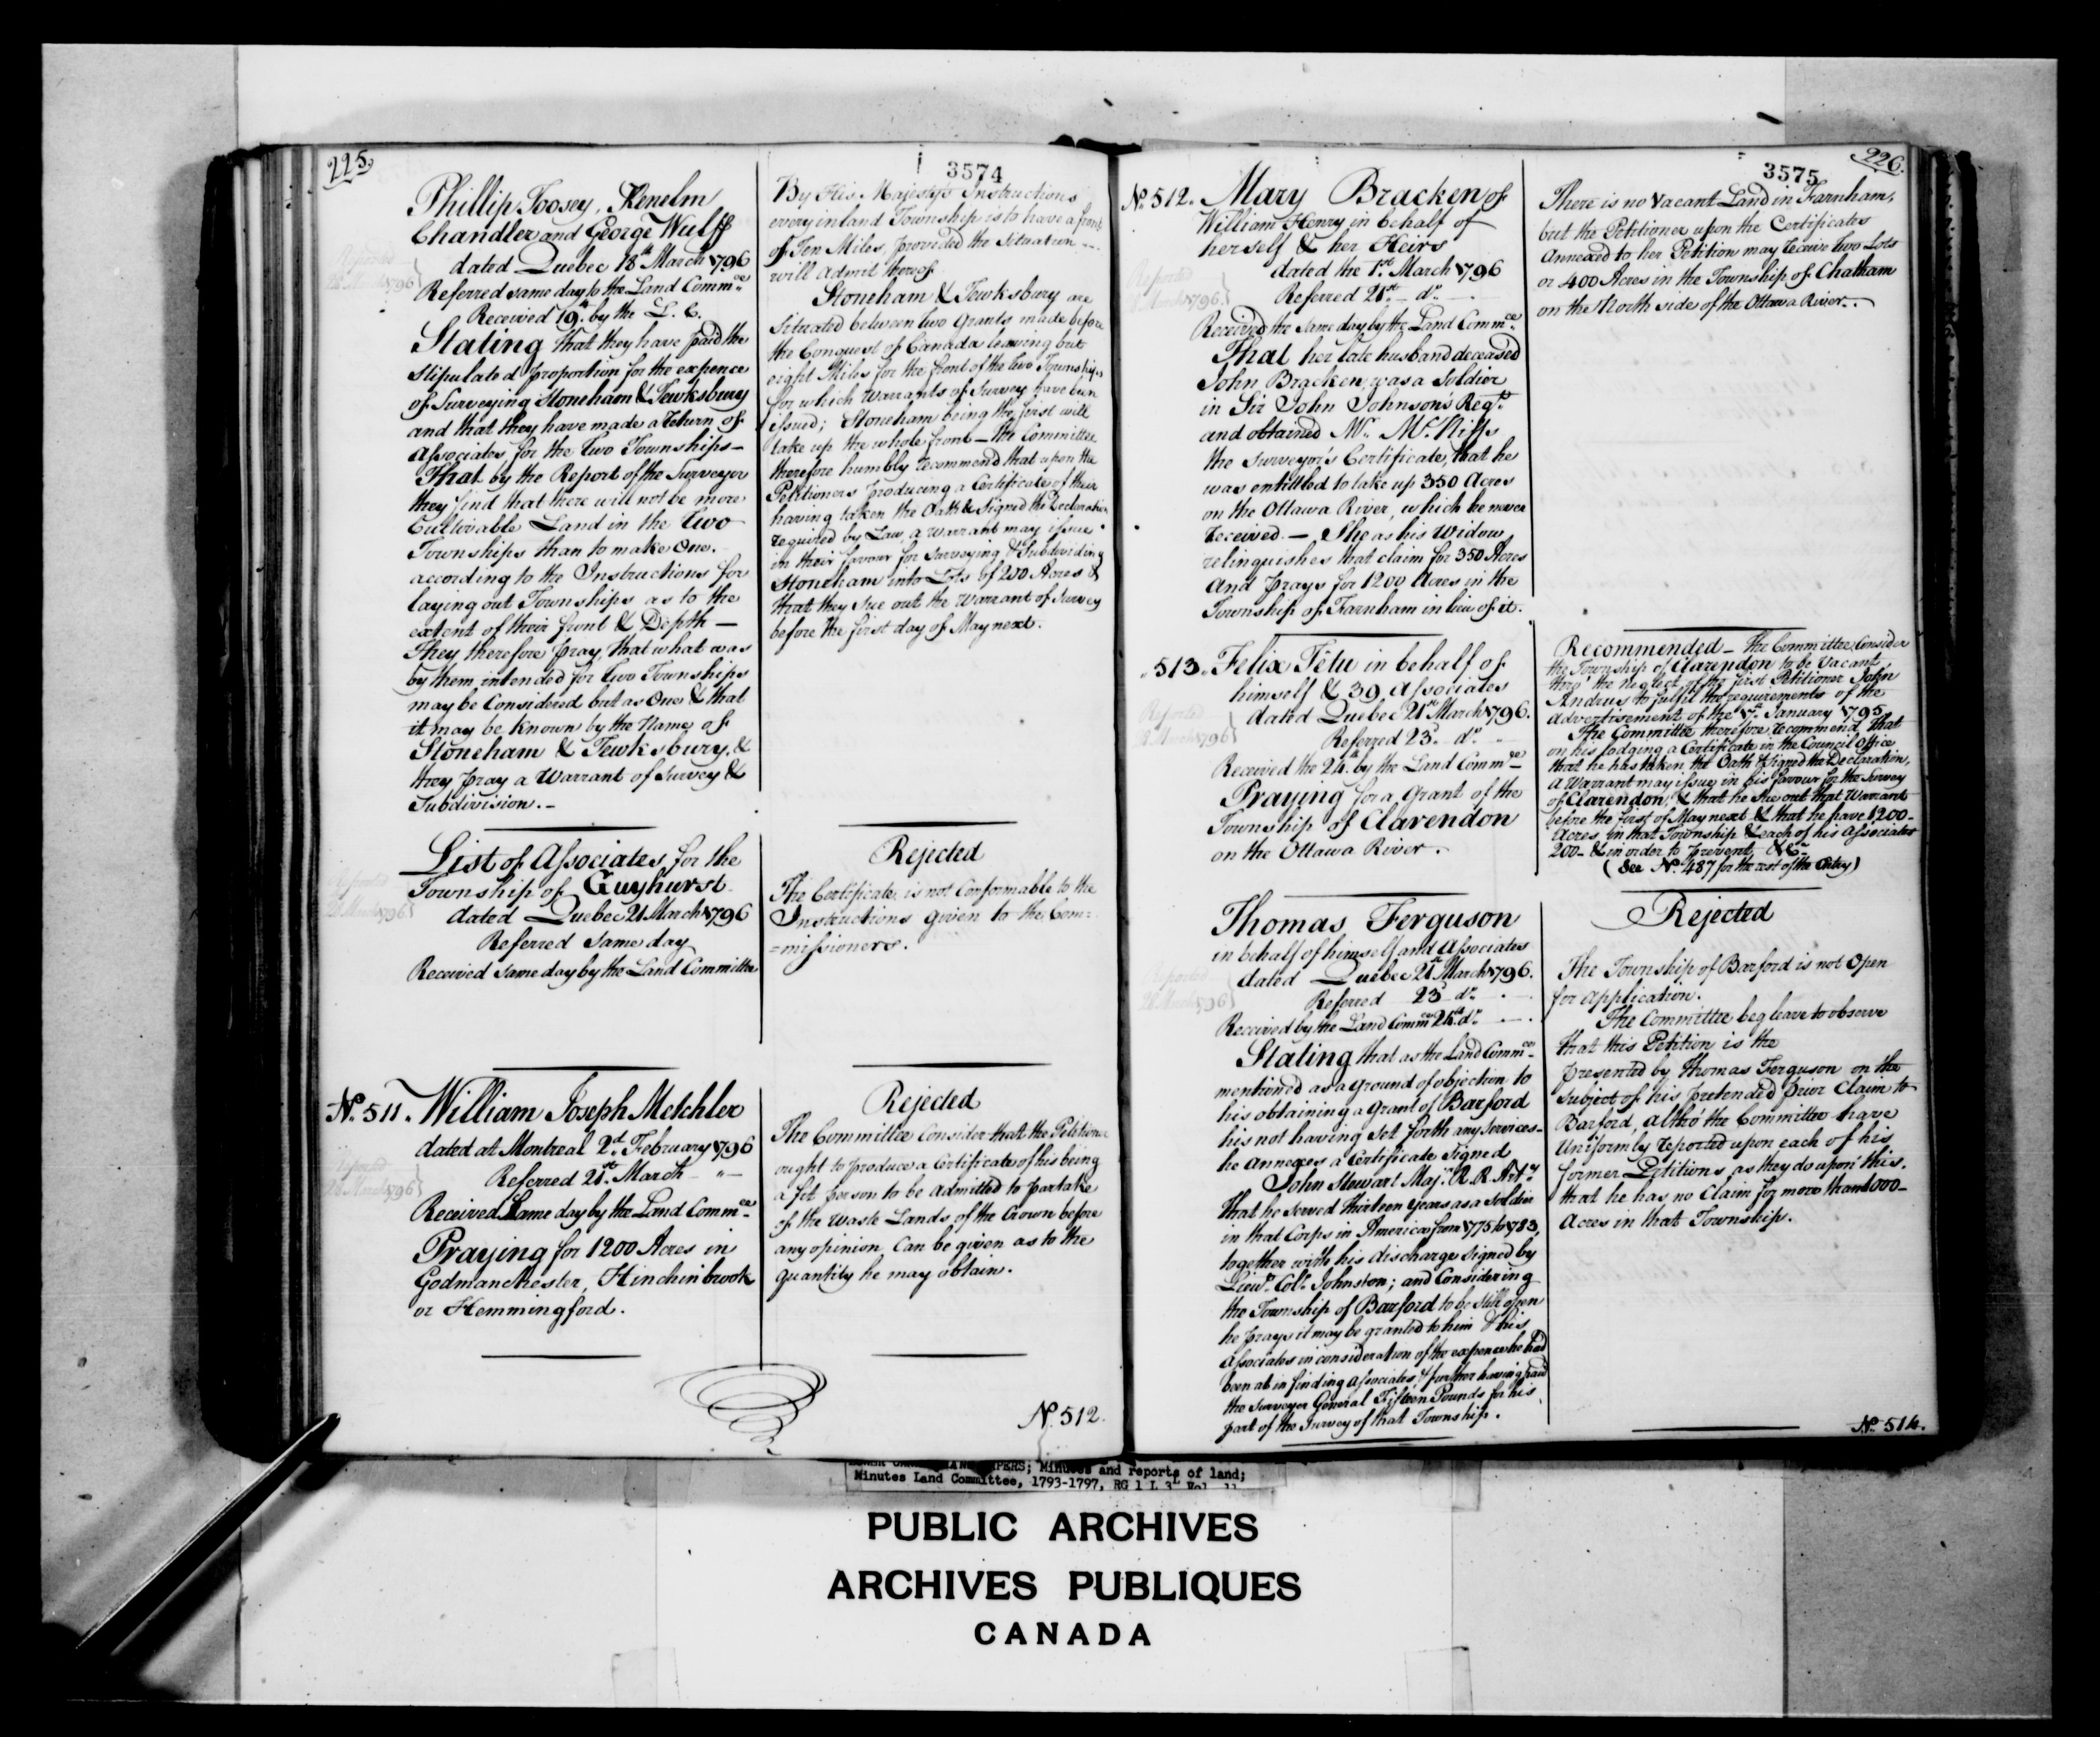 225.
3574
Phillip Toosey, Kenelm
Chandler and George Wulff
dated Quebec 18th March 1796
Referred same day to the Land Commee
Received 19. by the L. C.
Stating that they have paid the
stipulated proportion for the expence
of Surveying Stoneham & Tewksbury
and that they have made a return of
Associates for the two Townships –
That by the Report of the Surveyor
they find that there will not be more
Cultivable Land in the two
Townships than to make One.
according to the Instructions for
laying out Townships as to the
extent of their front & Depth –
They therefore pray, that what was
by them intended for two Townships
may be Considered but as One & that
it may be known by the Name of
Stoneham & Tewksbury, &
they pray a Warrant of Survey &
Subdivision. –
By His Majesty's Instructions
every inland Township is to have a front
of Ten Miles, provided the Situation
will admit thereof
Stoneham & Tewksbury are
Situated between two Grants made before
the Conquest of Canada leaving but
eight Miles for the front of the two Townships
for which Warrants of Survey have been
issued; Stoneham being the first will
take up the whole front – The Committee
therefore humbly recommend that upon the
Petitioners producing a Certificate of their
having taken the Oath & signed the Declaration
required by Law, a Warrant may issue
in their favour for Surveying & Subdividing
Stoneham into Lots of 200 Acres &
that they sue out the Warrant of Survey
before the first day of May next.
List of Associates for the
Township of Guyhurst
dated Quebec 21 March 1796
Referred same day
Received same day by the Land Committee
Rejected
The Certificate is not Conformable to the
Instructions given to the Com=
=missioners.
No. 511. William Joseph Metchler
dated at Montreal 2d. February 1796
Referred 21st. March – " –
Received Same day by the Land Commee
Praying for 1200 Acres in
Godmanchester, Hinchinbrook
or Hemmingford.
Rejected
The Committee Consider that the Petitioner
ought to produce a Certificate of his being
a fit person to be admitted to partake
of the Waste Lands of the Crown before
any opinion Can be given as to the
quantity he may obtain.
No. 512.
226.
3575
No. 512. Mary Bracken of
William Henry in behalf of
herself & her Heirs
dated the 1st. March 1796
Referred 21st – do.
Received the same day by the Land Commee.
That her late husband deceased
John Bracken, was a Soldier
in Sir John Johnson's Regt.
and obtained Mr. McNiffs
the Surveyor's Certificate, that he
was entitled to take up 350 Acres
on the Ottawa River, which he never
received. – She as his Widow
relinquishes that claim for 350 Acres
And prays for 1200 Acres in the
Township of Farnham in lieu of it.
There is no vacant Land in Farnham,
but the Petitioner upon the Certificates
Annexed to her Petition may receive two Lots
or 400 Acres in the Township of Chatham
on the North side of the Ottawa River.
" 513. Felix Têtu in behalf of
himself & 39 Associates
dated Quebec 21st March 1796.
Referred 23d. do. "
Received the 24th. by the Land Commee
Praying for a Grant of the
Township of Clarendon
on the Ottawa River.
Recommended – The Committee Consider
the Township of Clarendon to be Vacant
thro' the neglect of the first Petitioner John
Andrus to fulfil the requirements of the
advertisement of the January 1795.
The Committee therefore recommend that
on his lodging a Certificate in the Council Office
that he has taken the Oath & signed the Declaration,
a Warrant may issue in his favour for the Survey
of Clarendon, & that he sue out that Warrant
before the first of May next & that he have 1200 –
Acres in that Township & each of his Associates
200 – & in order to prevent, &c.
(See No. 487 for the rest of the Entry)
Thomas Ferguson
in behalf of himself and Associates
dated Quebec 21st March 1796.
Referred 23d do.
Received by the Land Commee 24th do.
Stating that as the Land Commee
mentioned as a ground of objection to
his obtaining a Grant of Barford
his not having set forth any Services –
he annexes a Certificate Signed
John Stewart Majr. R. R. Arty.
That he served thirteen years as a Soldier
in that Corps in America from 1775 to 1783,
together with his discharge Signed by
Lieut. Coll. Johnston; and Considering
the Township of Barford to be still open
he prays it may be granted to him & his
Associates in consideration of the expence he had
been at in finding Associates, & further having paid
the Surveyor General Fifteen Pounds for his
part of the Survey of that Township.
Rejected
The Township of Barford is not Open
for Application.
The Committee beg leave to observe
that this Petition is the
presented by Thomas Ferguson on the
Subject of his pretended prior Claim to
Barford, altho' the Committee have
Uniformly reported upon each of his
former Petitions, as they do upon this.
that he has no Claim for more than 1000 –
Acres in that Township.
No. 514.
Minutes and reports of land;
Minutes Land Committee, 1793-1797, RG 1 L 3L Vol. 11
PUBLIC ARCHIVES
ARCHIVES PUBLIQUES
CANADA